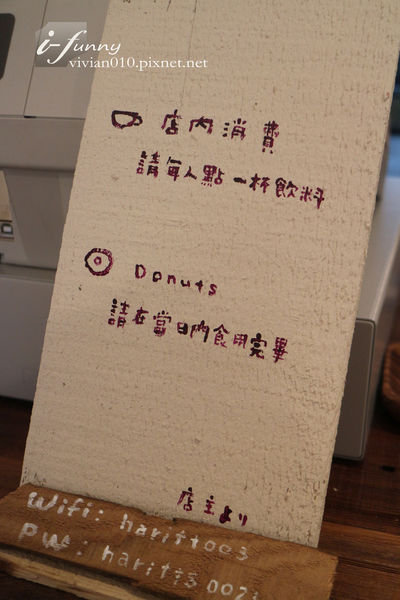 i-funny
vivian010.pixnet.net
店内消費
請每人點一杯飲料
Donuts
請在當日內食用完畢
店主より
Wifi: haritts003
PW: